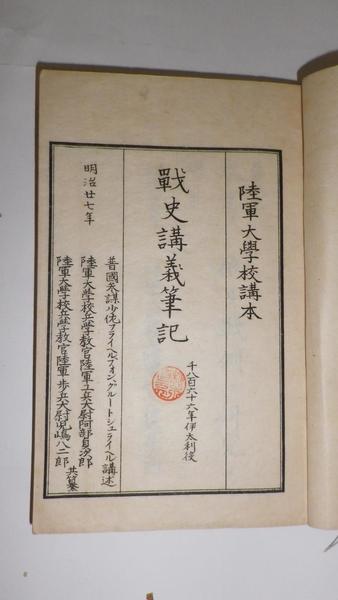 陸軍大學校講本
戰史講義筆記
千八百六十六年伊太利役
明治廿七年
普國参謀少佐フライヘルフォン、グルートシュライヘル講述
陸軍大學校兵學教官陸軍工兵大尉阿部貞次郎
陸軍大學校兵學教官陸軍歩兵大尉児嶋八二郎
共纂